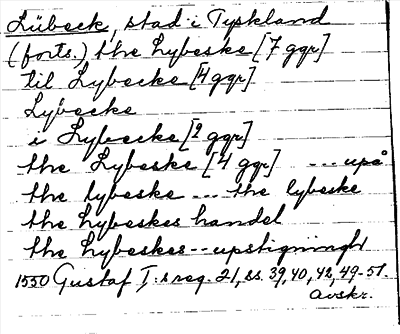 Lübeck, stad i Tyskland
(forts.) the Lybeske [7 ggr]
til Lybecke [4 ggr]
Lybecke
i Lybecke [2 ggr]
the Lybeske [4 ggr] ... upå
the lybeske ... the lybeske
the Lybeskes handel
the Lybeskes -- upstigningh
1550 Gustaf I:s reg. 21, ss. 39, 40, 42, 49-51.
avskr.